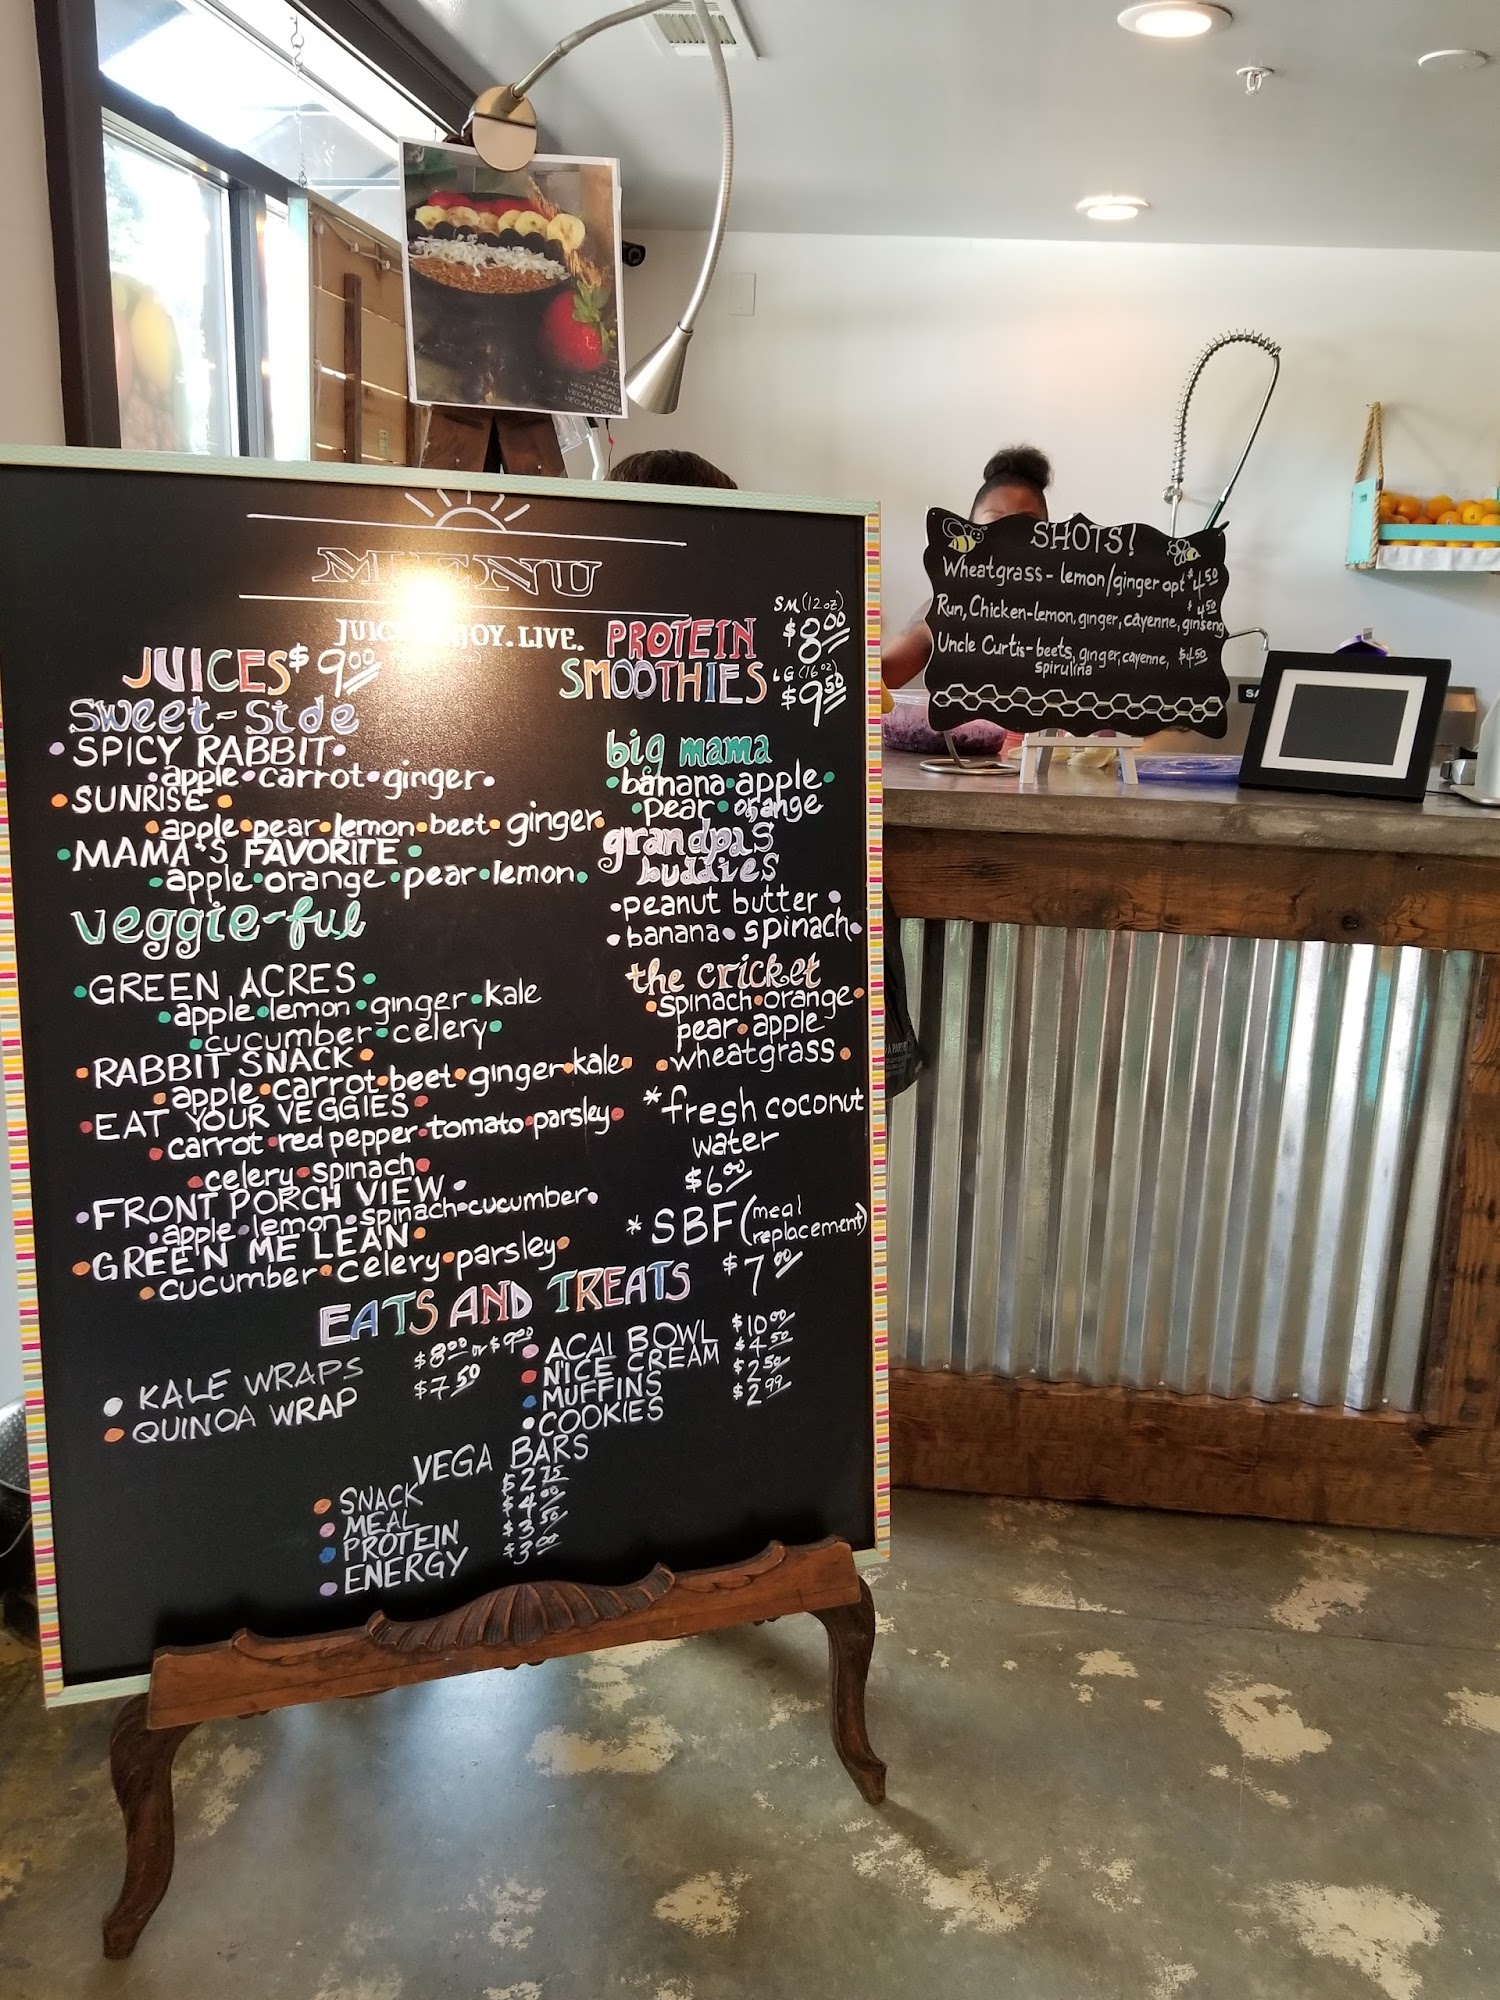 MENU
JUICE. ENJOY. LIVE.
JUICES $9.00
sweet-side
SPICY RABBIT
apple • carrot • ginger •
SUNRISE
apple • pear • lemon • beet • ginger
MAMA'S FAVORITE
apple • orange • pear • lemon •
veggie-ful
GREEN ACRES
apple • lemon • ginger • kale
cucumber • celery •
RABBIT SNACK
apple • carrot • beet • ginger • kale •
EAT YOUR VEGGIES
carrot • red pepper • tomato • parsley •
celery • spinach •
FRONT PORCH VIEW
apple • lemon • spinach • cucumber •
GREEN ME LEAN
cucumber • celery • parsley •
PROTEIN
SMOOTHIES
SM (12oz)
$8.00
LG (16oz)
$9.50
big mama
banana • apple •
pear • orange
grandpas
buddies
• peanut butter •
• banana • spinach •
the cricket
• spinach • orange •
pear • apple
• wheatgrass •
* fresh coconut
water
$6.00
* SBF (meal
replacement)
$7.00
EATS AND TREATS
KALE WRAPS $8.00 or $9.00
QUINOA WRAP $7.50
ACAI BOWL $10.00
N'ICE CREAM $4.50
MUFFINS $2.50
COOKIES $2.99
VEGA BARS
SNACK $2.75
MEAL $4.00
PROTEIN $3.50
ENERGY $3.00
SHOTS!
Wheatgrass - lemon/ginger opt $4.50
Run, Chicken - lemon, ginger, cayenne, ginseng $4.50
Uncle Curtis - beets, ginger, cayenne, $4.50
spirulina